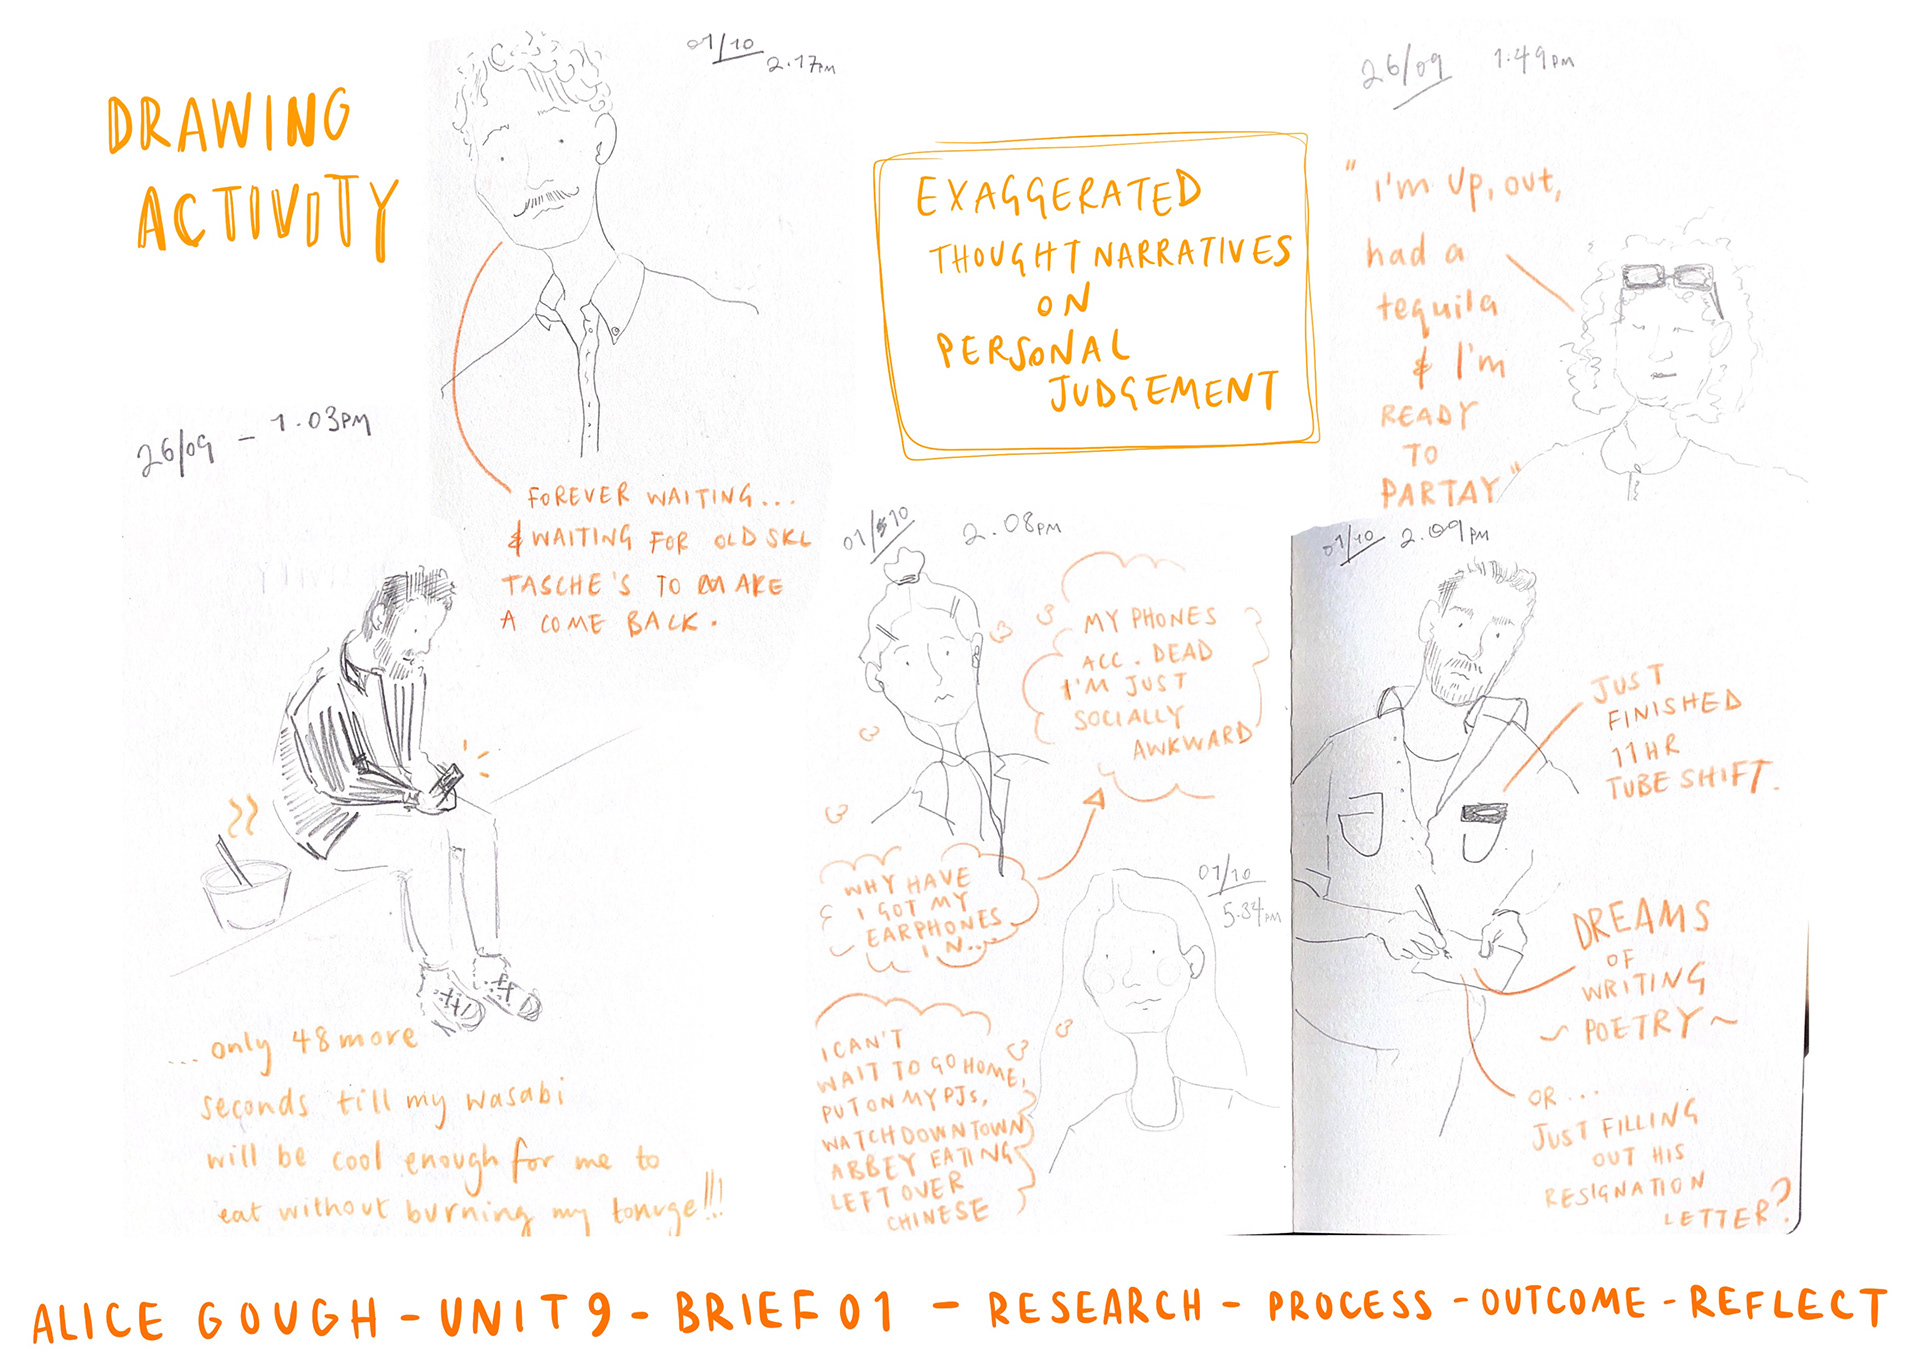 DRAWING
ACTIVITY
01/10
2.17PM
FOREVER WAITING...
& WAITING FOR OLD SKL
TASCHE'S TO MAKE
A COME BACK.
EXAGGERATED
THOUGHT NARRATIVES
ON
PERSONAL
JUDGEMENT
26/09 1.49PM
"I'm up, out,
had a
tequila
& I'm
READY
TO
PARTAY"
26/09 - 1.03PM
...only 48 more
seconds till my wasabi
will be cool enough for me to
eat without burning my tonuge!!!
01/10 2.08PM
MY PHONES
ACC. DEAD
I'M JUST
SOCIALLY
AWKWARD
WHY HAVE
I GOT MY
EARPHONES
IN...
01/10
5.34PM
I CAN'T
WAIT TO GO HOME,
PUT ON MY PJs,
WATCH DOWNTOWN
ABBEY EATING
LEFT OVER
CHINESE
01/10 2.09PM
JUST
FINISHED
11HR
TUBE SHIFT.
DREAMS
OF
WRITING
~ POETRY ~
OR...
JUST FILLING
OUT HIS
RESIGNATION
LETTER?
ALICE GOUGH - UNIT 9 - BRIEF 01 - RESEARCH - PROCESS - OUTCOME - REFLECT